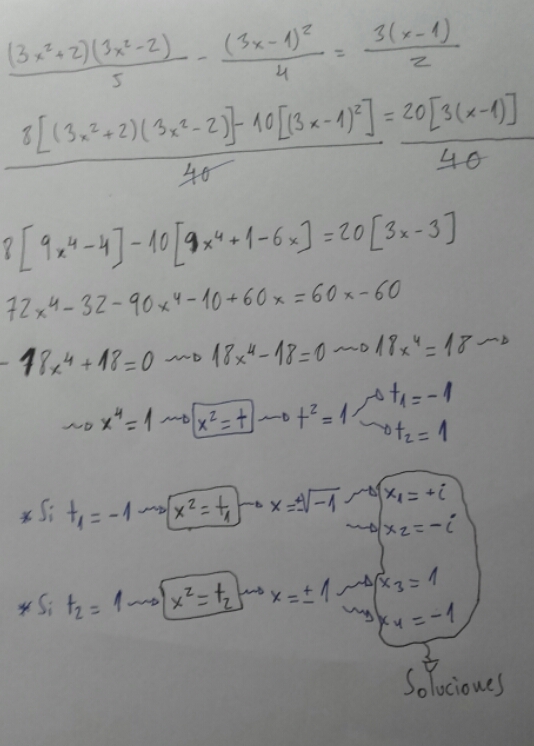 (3x²+2)(3x²-2)/5 - (3x-1)²/4 = 3(x-1)/2
8[(3x²+2)(3x²-2)]-10[(3x-1)²]/40 = 20[3(x-1)]/40
8[9x⁴-4]-10[9x⁴+1-6x]=20[3x-3]
72x⁴-32-90x⁴-10+60x=60x-60
-18x⁴+18=0 ⇝ 18x⁴-18=0 ⇝ 18x⁴=18 ⇝
⇝ x⁴=1 ⇝ x²=t ⇝ t²=1 ⇝ t₁=-1
⇝ t₂=1
* Si t₁=-1 ⇝ x²=t₁ ⇝ x=±√-1 ⇝ x₁=+i
⇝ x₂=-i
* Si t₂=1 ⇝ x²=t₂ ⇝ x=±1 ⇝ x₃=1
⇝ x₄=-1
Soluciones